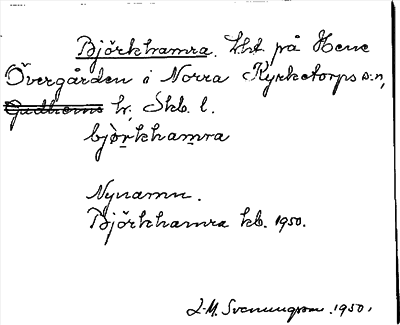 Björkhamra. Lht på Hene
Övergården i Norra Kyrketorps s:n,
Gudhems hr, Skb. l.
bjò̱rkhamra
Nynamn.
Björkhamra kb. 1950.
J-M. Svenungsson. 1950.